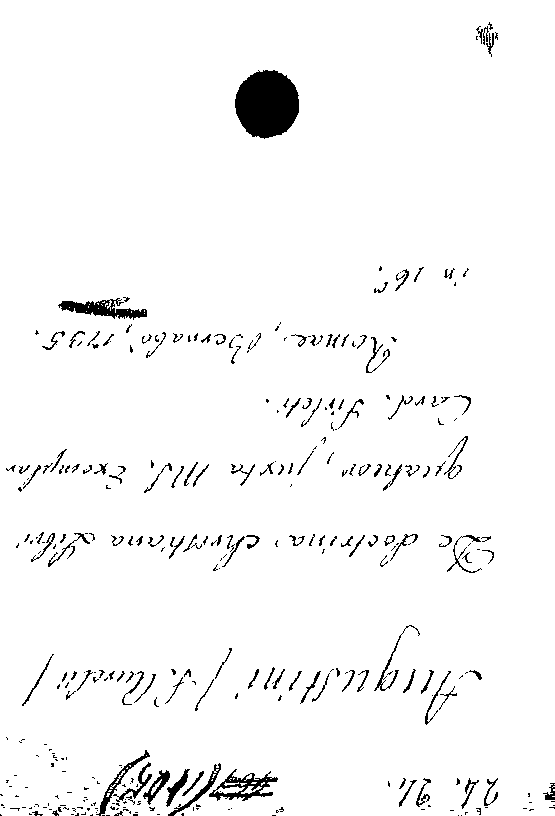 24. 24.
Augustini / S. Aurelii /
De doctrina christiana Libri
quatuor, juxta MS. Exemplar
Card. Sirleti.
Romae, Bernabo, 1735.
in 16º.